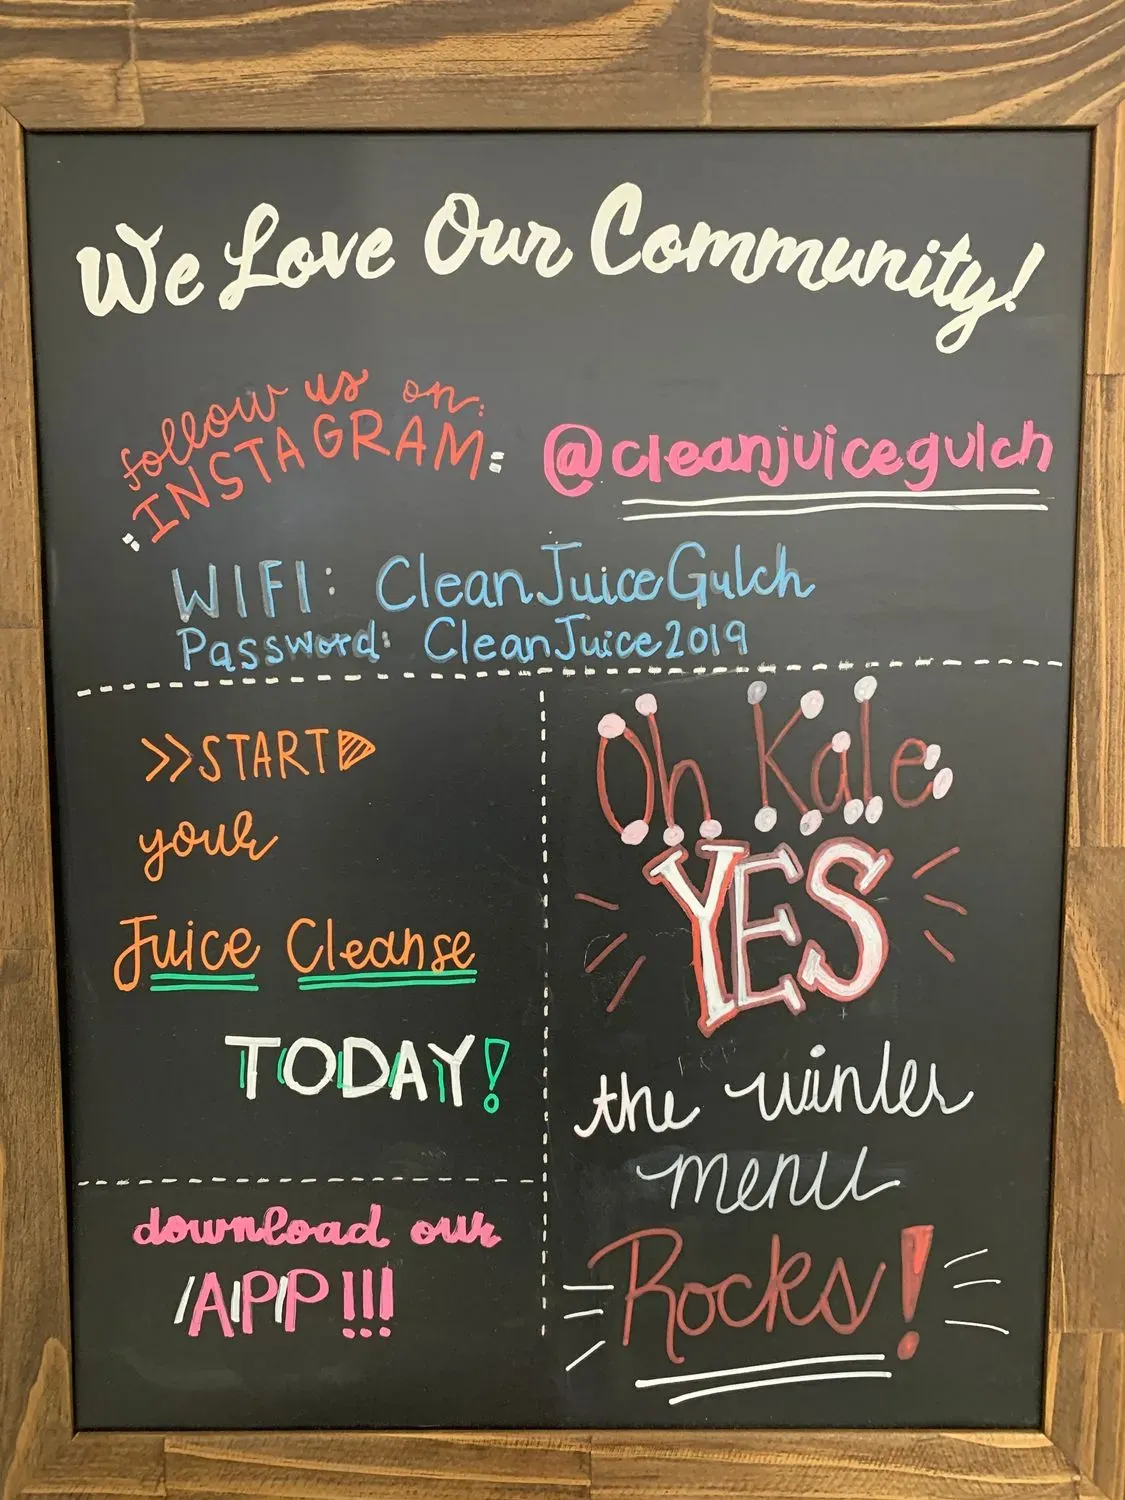 We Love Our Community!
follow us on:
INSTAGRAM:
@cleanjuicegulch
WIFI: CleanJuiceGulch
Password: CleanJuice2019
>>START
your
Juice Cleanse
TODAY!
download our
APP!!!
Oh Kale
YES
the winter
menu
Rocks!